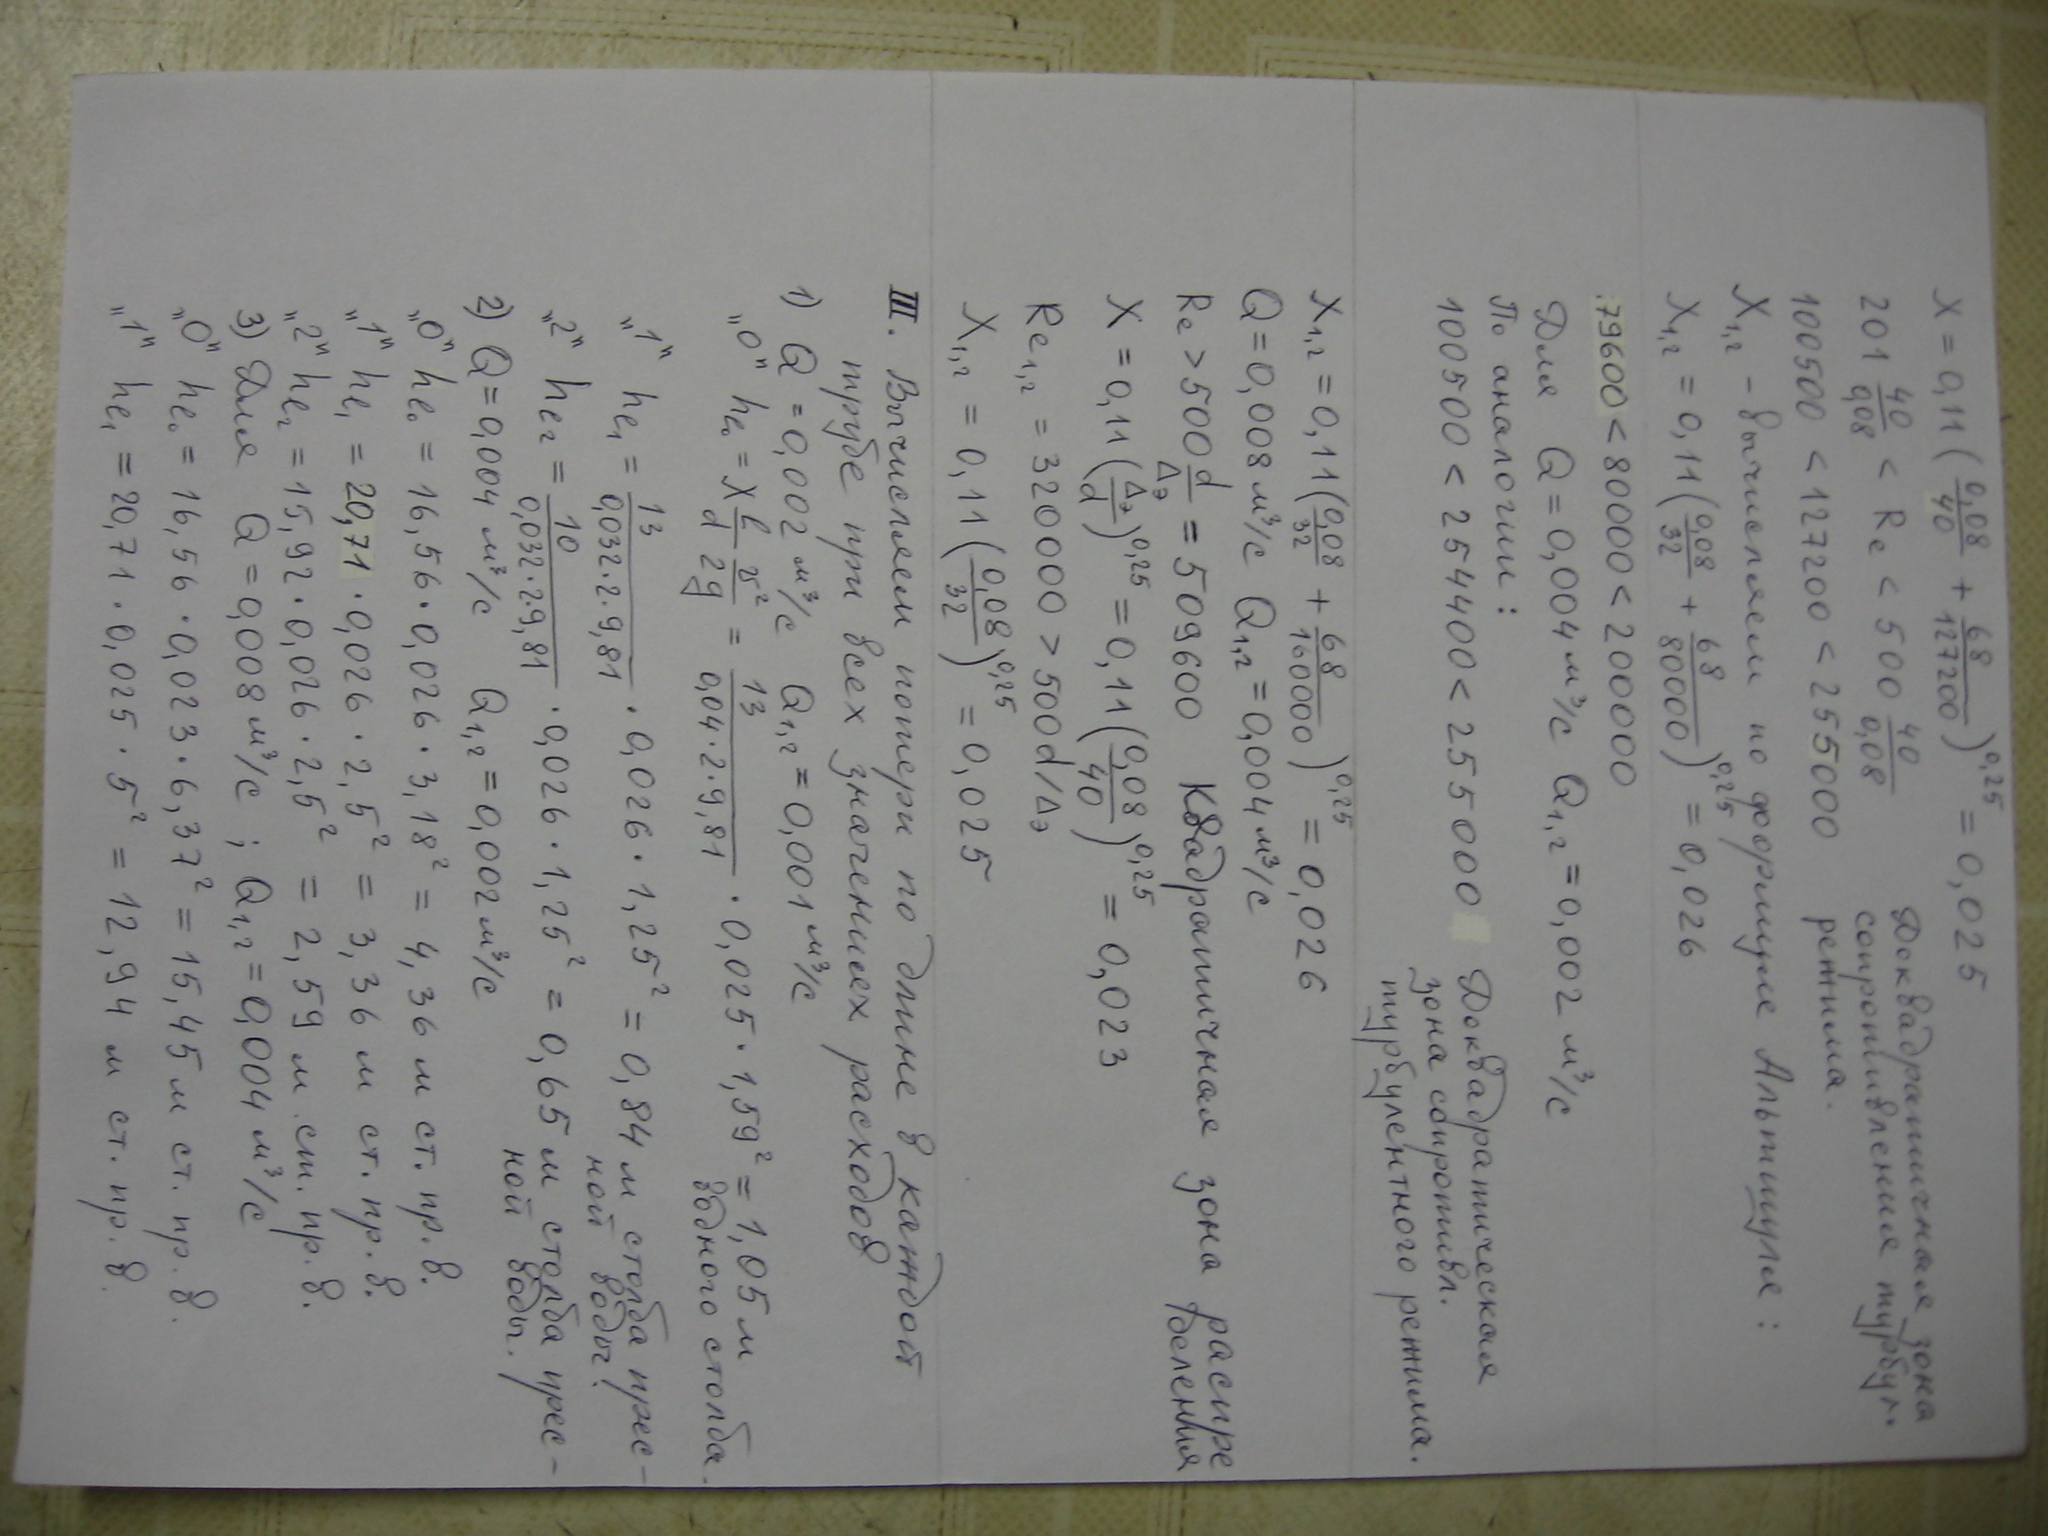 X = 0,11 (0,08/40 + 68/127200)^0,25 = 0,025
201 40/0,08 < Re < 500 40/0,08 Доквадратичная зона
100500 < 127200 < 255000 сопротивления турбул.
режима.
X1,2 - вычисляем по формуле Альтшуля :
X1,2 = 0,11 (0,08/32 + 68/80000)^0,25 = 0,026
79600 < 80000 < 200000
Для Q = 0,004 м³/с Q1,2 = 0,002 м³/с
По аналогии :
100500 < 254400 < 255000 Доквадратическая
зона сопротивл.
турбулентного режима.
X1,2 = 0,11 (0,08/32 + 68/160000)^0,25 = 0,026
Q = 0,008 м³/с Q1,2 = 0,004 м³/с
Re > 500 d/Δэ = 509600 Квадратичная зона распре
деления
X = 0,11 (Δэ/d)^0,25 = 0,11 (0,08/40)^0,25 = 0,023
Re1,2 = 320000 > 500d/Δэ
X1,2 = 0,11 (0,08/32)^0,25 = 0,025
III. Вычисляем потери по длине в каждой
трубе при всех значениях расходов
1) Q = 0,002 м³/с Q1,2 = 0,001 м³/с
„0" hе₀ = X ℓ/d v²/2g = 13/0,04·2·9,81 · 0,025 · 1,59² = 1,05 м
водного столба.
„1" hе₁ = 13/0,032·2·9,81 · 0,026 · 1,25² = 0,84 м столба прес-
ной воды.
„2" hе₂ = 10/0,032·2·9,81 · 0,026 · 1,25² = 0,65 м столба прес-
ной воды.
2) Q = 0,004 м³/с Q1,2 = 0,002 м³/с
„0" hе₀ = 16,56 · 0,026 · 3,18² = 4,36 м ст. пр. в.
„1" hе₁ = 20,71 · 0,026 · 2,5² = 3,36 м ст. пр. в.
„2" hе₂ = 15,92 · 0,026 · 2,5² = 2,59 м ст. пр. в.
3) Для Q = 0,008 м³/с ; Q1,2 = 0,004 м³/с
„0" hе₀ = 16,56 · 0,023 · 6,37² = 15,45 м ст. пр. в.
„1" hе₁ = 20,71 · 0,025 · 5² = 12,94 м ст. пр. в.